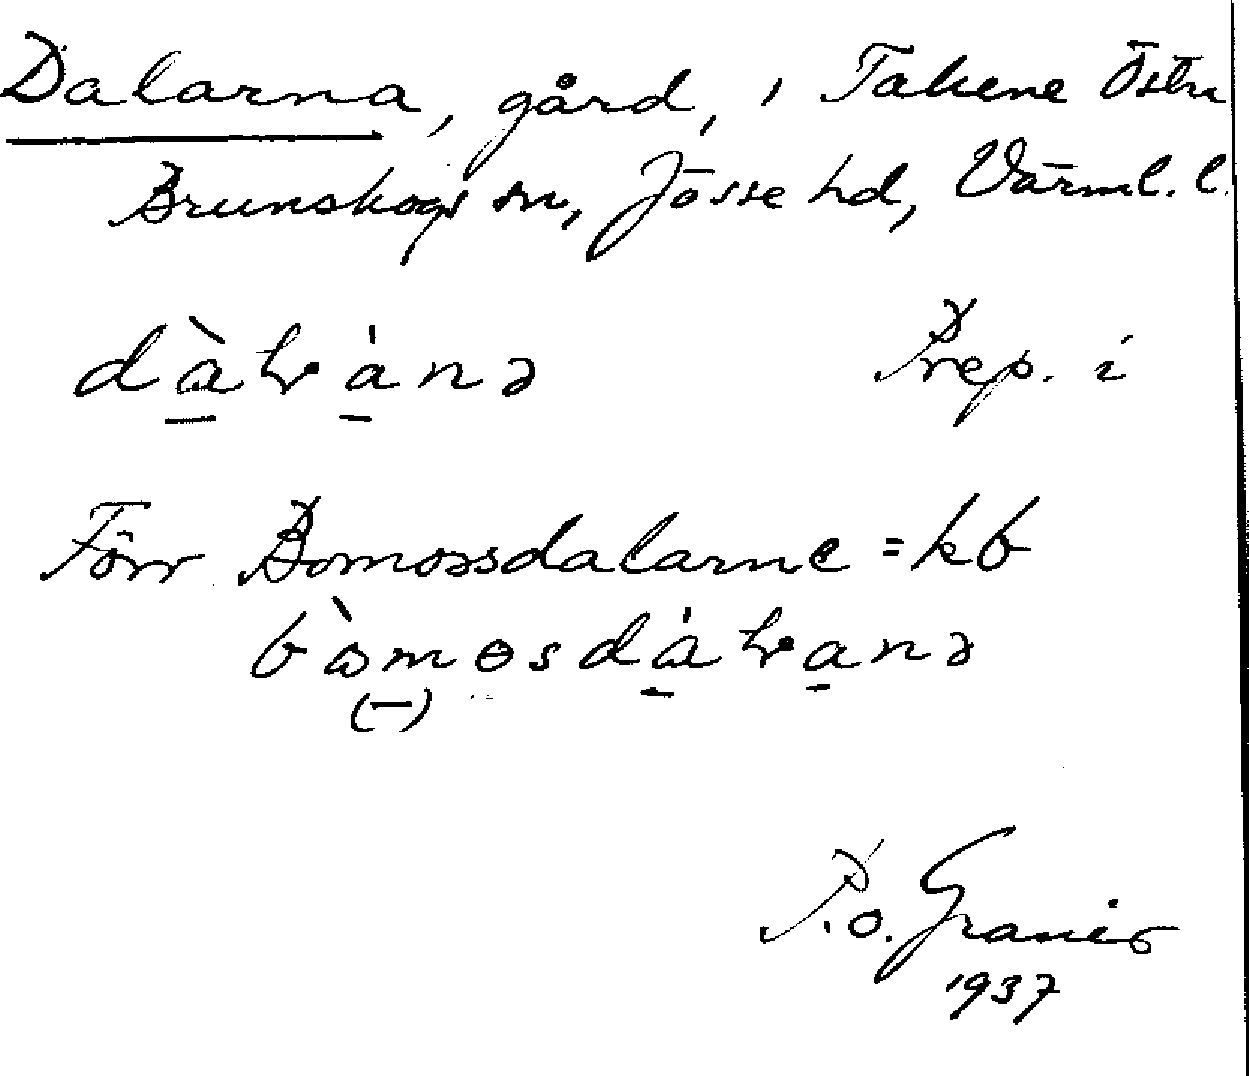 Dalarna, gård, i Takene Östra
Brunskogs sn, Jösse hd, Värml. l.
Prep. i
Förr Bomossdalarne = kb
P.O. Graner
1937